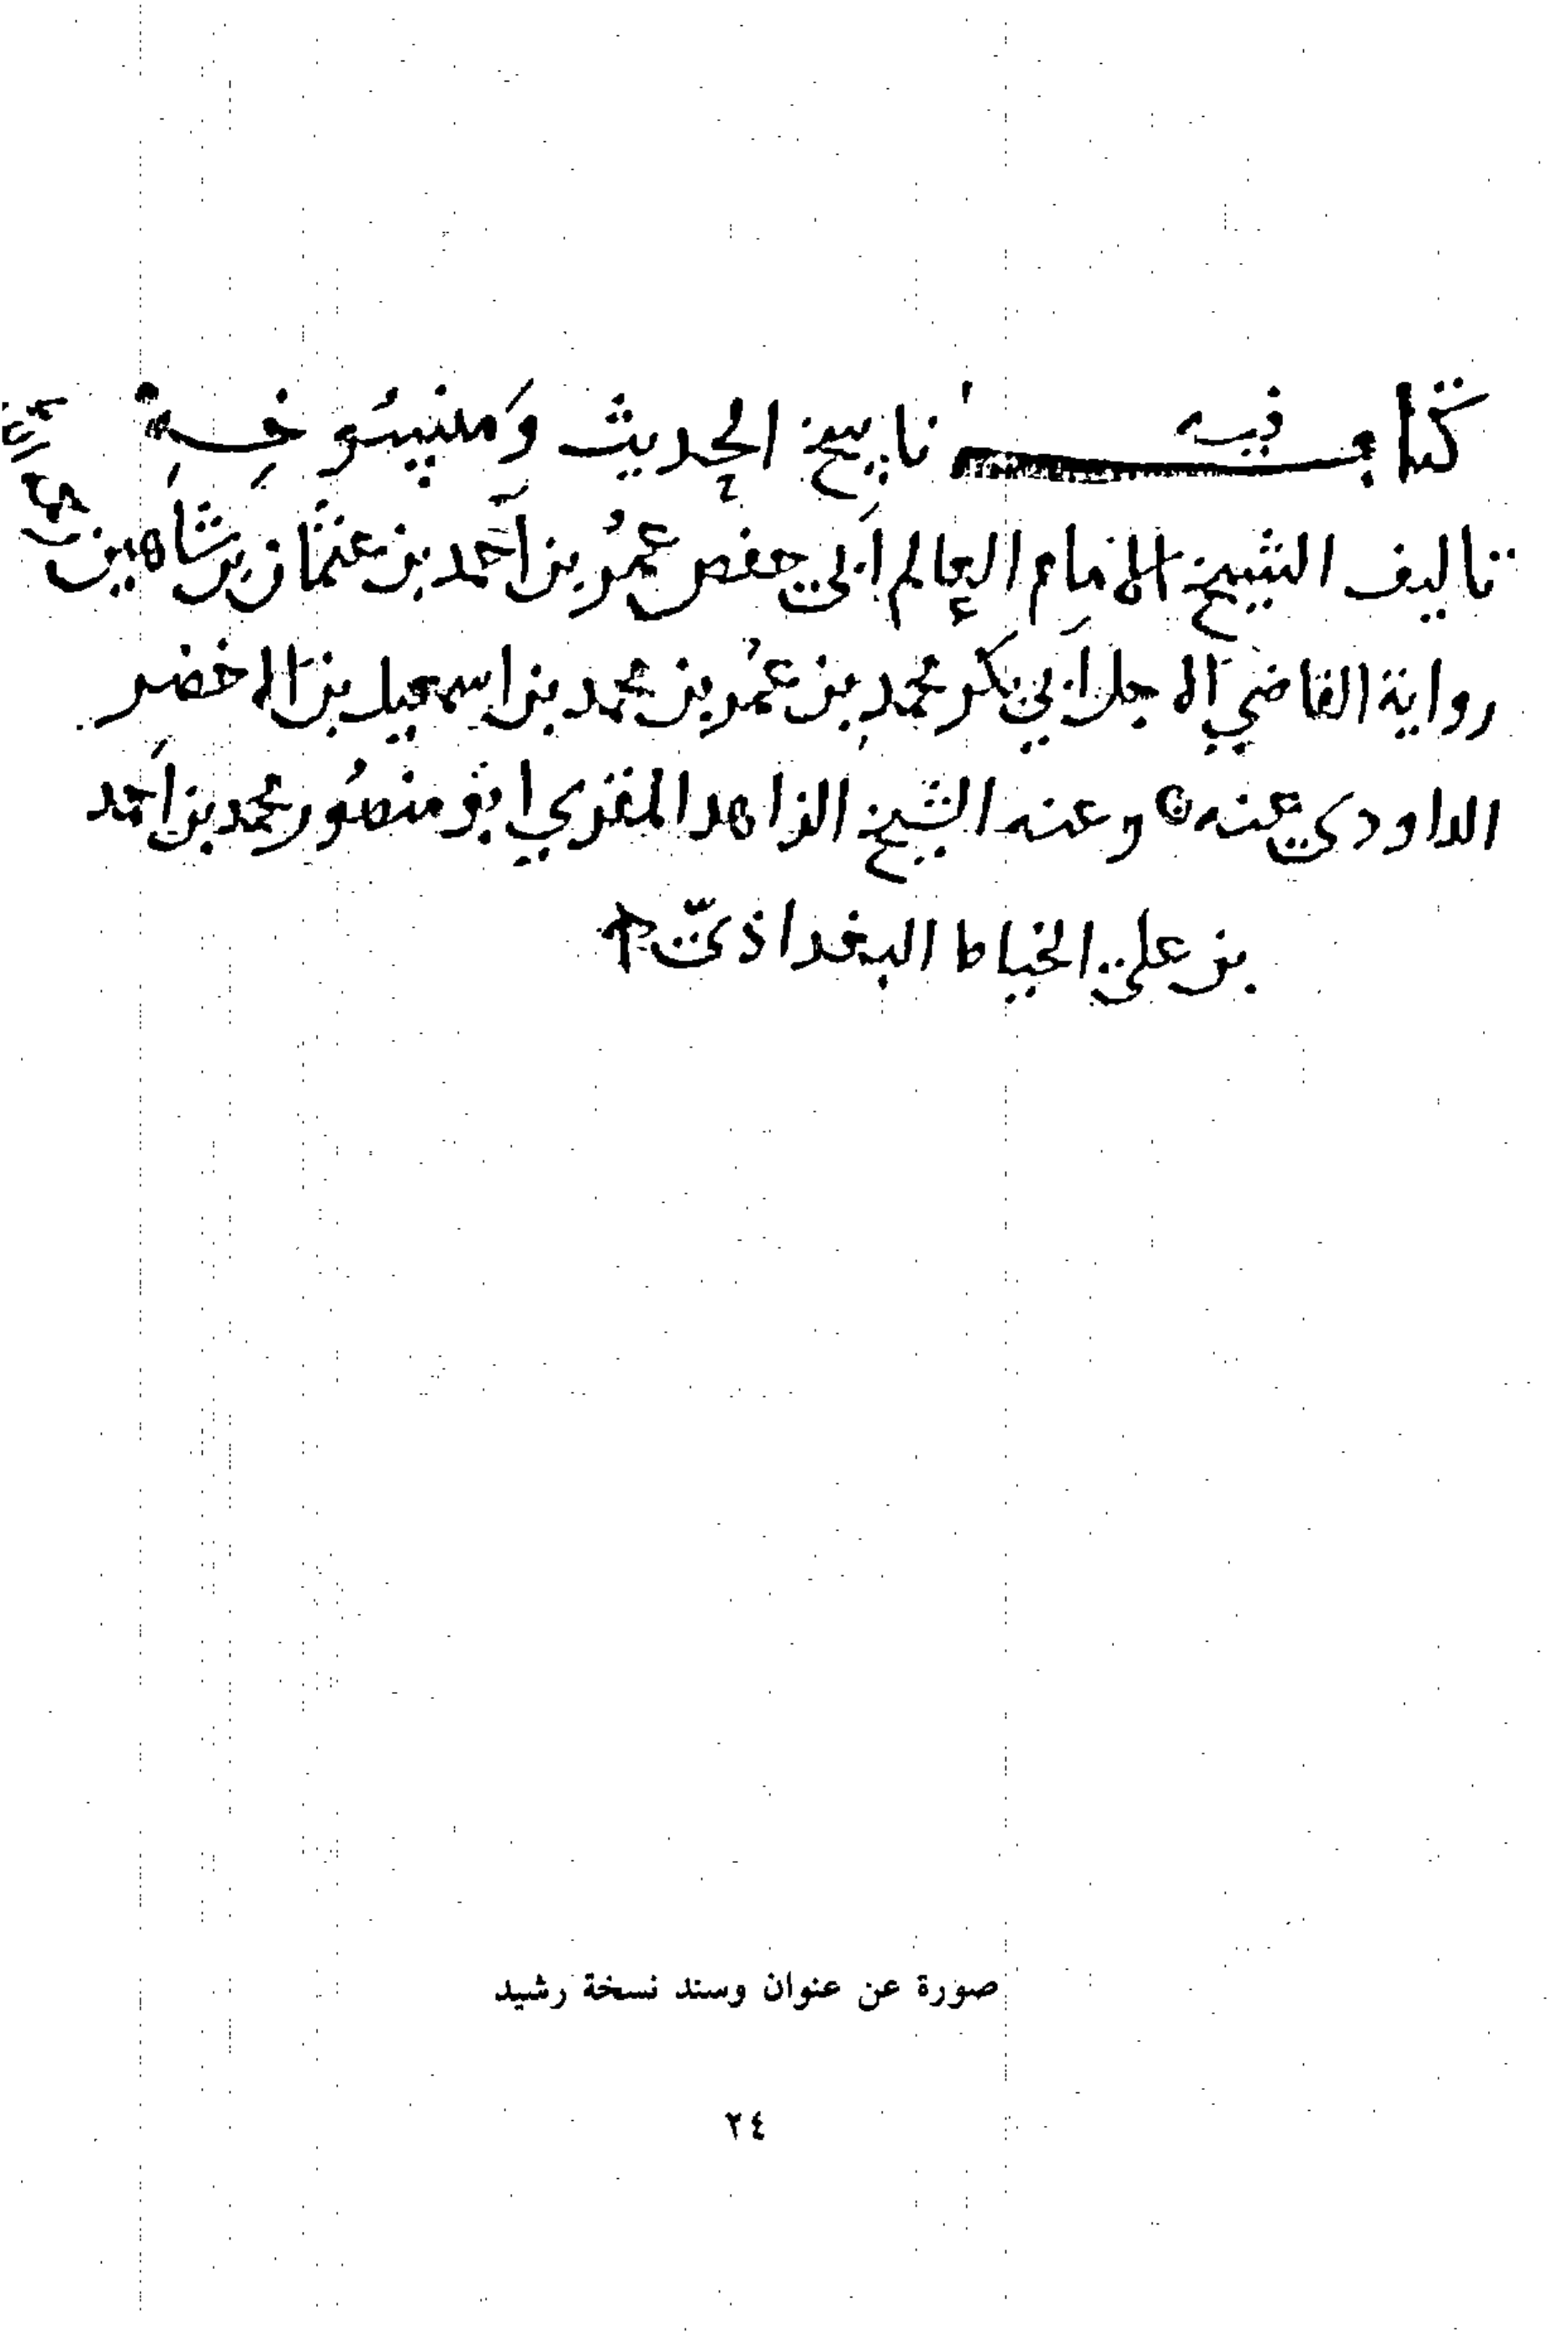 كتاب فيه ناسخ الحديث ومنسوخه
تاليف الشيخ الامام العالم أبي حفص عمُر بن أحمد بن عثمان بن شاهين
رواية القاضي الاجل أبي بكر محمد بن عمُر بن محمد بن اسمعيل بن الاخضر
الداودي عنه وعنه الشيخ الزاهد المقري ابو منصُور محمد بن أحمد
بن علي الخياط البغداذيّ
صورة عن عنوان وسند نسخة رشيد
٢٤